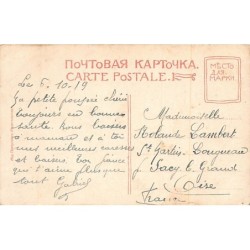 ПОЧТОВАЯ КАРТОЧКА.
CARTE POSTALE.
МѢСТО
ДЛЯ
МАРКИ
Le 6.10-19
Ma petite poupée chérie
toujours en bonne
santé. Nous baisers
a maman et a toi
mes meilleures caresses
et baisers ton
qui t'aime plus que
tout Gabriel
Mademoiselle
Rolande Lambert
St Gardin Longueau
Sacy le Grand
Oise
France